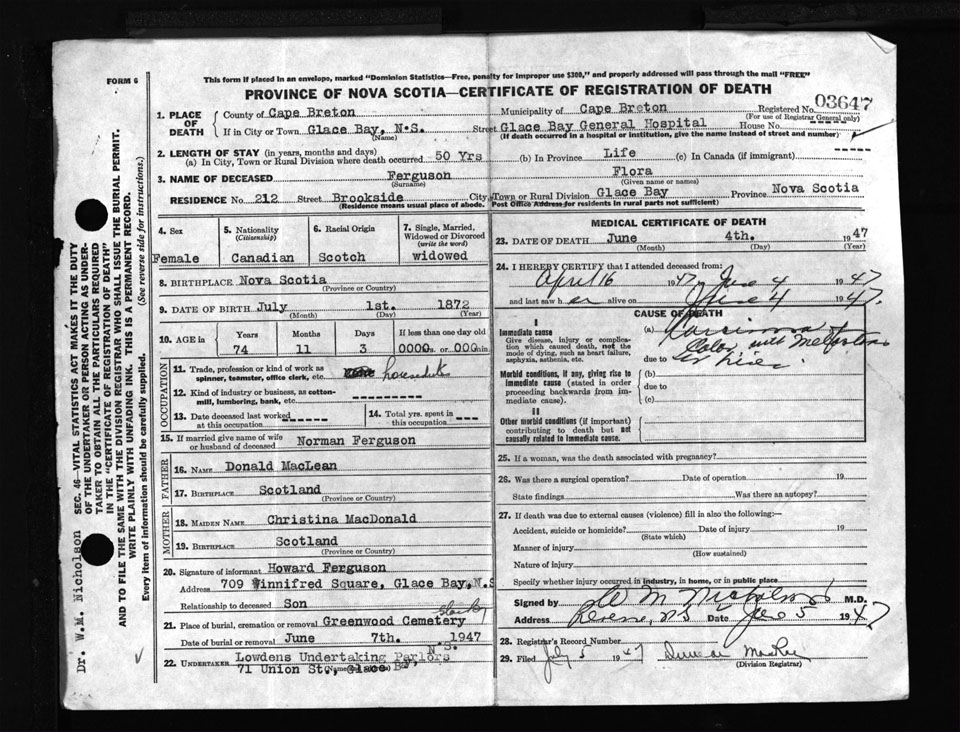 FORM 6
This form if placed in an envelope, marked "Dominion Statistics—Free, penalty for improper use $300," and properly addressed will pass through the mail "FREE"
PROVINCE OF NOVA SCOTIA—CERTIFICATE OF REGISTRATION OF DEATH
1. PLACE OF DEATH
County of Cape Breton Municipality of Cape Breton Registered No. 03647
(For use of Registrar General only)
If in City or Town Glace Bay, N.S. Street Glace Bay General Hospital House No.
(Name) (If death occurred in a hospital or institution, give the name instead of street and number)
2. LENGTH OF STAY (in years, months and days)
(a) In City, Town or Rural Division where death occurred 50 Yrs (b) In Province Life (c) In Canada (if immigrant)
3. NAME OF DECEASED Ferguson Flora
(Surname) (Given name or names)
RESIDENCE No. 212 Street Brookside City, Town or Rural Division Glace Bay Province Nova Scotia
(Residence means usual place of abode. Post Office Address for residents in rural parts not sufficient)
4. Sex
Female
5. Nationality
(Citizenship)
Canadian
6. Racial Origin
Scotch
7. Single, Married, Widowed or Divorced
(write the word)
widowed
8. BIRTHPLACE Nova Scotia
(Province or Country)
9. DATE OF BIRTH July 1st. 1872
(Month) (Day) (Year)
10. AGE in
Years Months Days If less than one day old
74 11 3 0000s. or 000min.
OCCUPATION
11. Trade, profession or kind of work as
spinner, teamster, office clerk, etc.
12. Kind of industry or business, as cotton-
mill, lumbering, bank, etc.
13. Date deceased last worked
at this occupation
14. Total yrs. spent in
this occupation
15. If married give name of wife
or husband of deceased Norman Ferguson
FATHER
16. NAME Donald MacLean
17. BIRTHPLACE Scotland
(Province or Country)
MOTHER
18. MAIDEN NAME Christina MacDonald
19. BIRTHPLACE Scotland
(Province or Country)
20. Signature of informant Howard Ferguson
Address 709 Winnifred Square, Glace Bay, N.S
Relationship to deceased Son
21. Place of burial, cremation or removal Greenwood Cemetery
Date of burial or removal June 7th. 1947
22. UNDERTAKER Lowdens Undertaking Parlors
71 Union St., Glace Bay, N.S.
(Name and Address)
MEDICAL CERTIFICATE OF DEATH
23. DATE OF DEATH June 4th. 1947
(Month) (Day) (Year)
24. I HEREBY CERTIFY that I attended deceased from:
April 16 1947 June 4 1947
and last saw her alive on June 4 1947.
CAUSE OF DEATH
I
Immediate cause
Give disease, injury or complica-
tion which caused death, not the
mode of dying, such as heart failure,
asphyxia, asthenia, etc.
(a) Carcinoma of
Colon with Metastases
due to
Morbid conditions, if any, giving rise to
immediate cause (stated in order
proceeding backwards from im-
mediate cause).
(b)
due to
(c)
II
Other morbid conditions (if important)
contributing to death but not
causally related to immediate cause.
25. If a woman, was the death associated with pregnancy?
26. Was there a surgical operation? Date of operation 19
State findings Was there an autopsy?
27. If death was due to external causes (violence) fill in also the following:—
Accident, suicide or homicide? Date of injury 19
(State which)
Manner of injury
(How sustained)
Nature of injury
Specify whether injury occurred in industry, in home, or in public place
Signed by W M Nicholson M.D.
Address Reserve, NS Date June 5 1947
28. Registrar's Record Number
29. Filed July 5 1947 Duncan MacRae
(Division Registrar)
Dr. W.M. Nicholson
SEC. 46—VITAL STATISTICS ACT MAKES IT THE DUTY
OF THE UNDERTAKER OR PERSON ACTING AS UNDER-
TAKER TO OBTAIN ALL THE PARTICULARS REQUIRED
IN THE "CERTIFICATE OF REGISTRATION OF DEATH"
AND TO FILE THE SAME WITH THE DIVISION REGISTRAR WHO SHALL ISSUE THE BURIAL PERMIT.
WRITE PLAINLY WITH UNFADING INK. THIS IS A PERMANENT RECORD.
Every item of information should be carefully supplied. (See reverse side for instructions.)